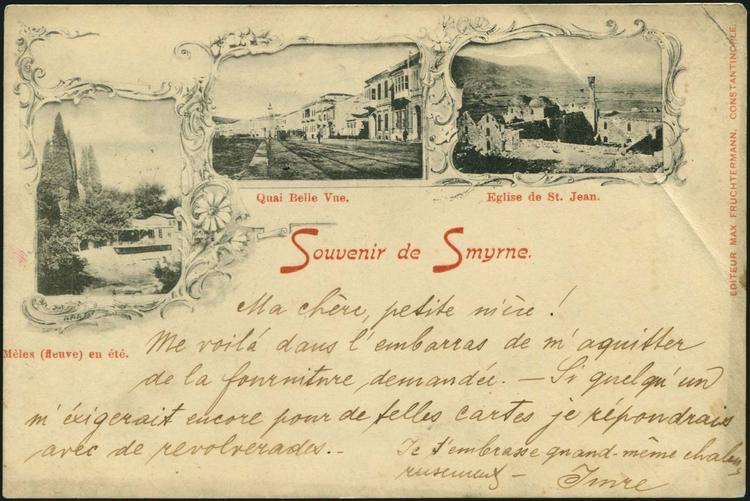 Quai Belle Vue.
Eglise de St. Jean.
EDITEUR MAX FRUCHTERMANN, CONSTANTINOPLE.
Souvenir de Smyrne.
Mèles (fleuve) en été.
Ma chère, petite nièce !
Me voilá dans l'embarras de m'aquitter
de la fourniture demandée. – Si quelqu'un
m'éxigerait encore pour de telles cartes je répondrais
avec de revolverades. –
Je t'embrasse quand-même chaleu
reusement –
Imre